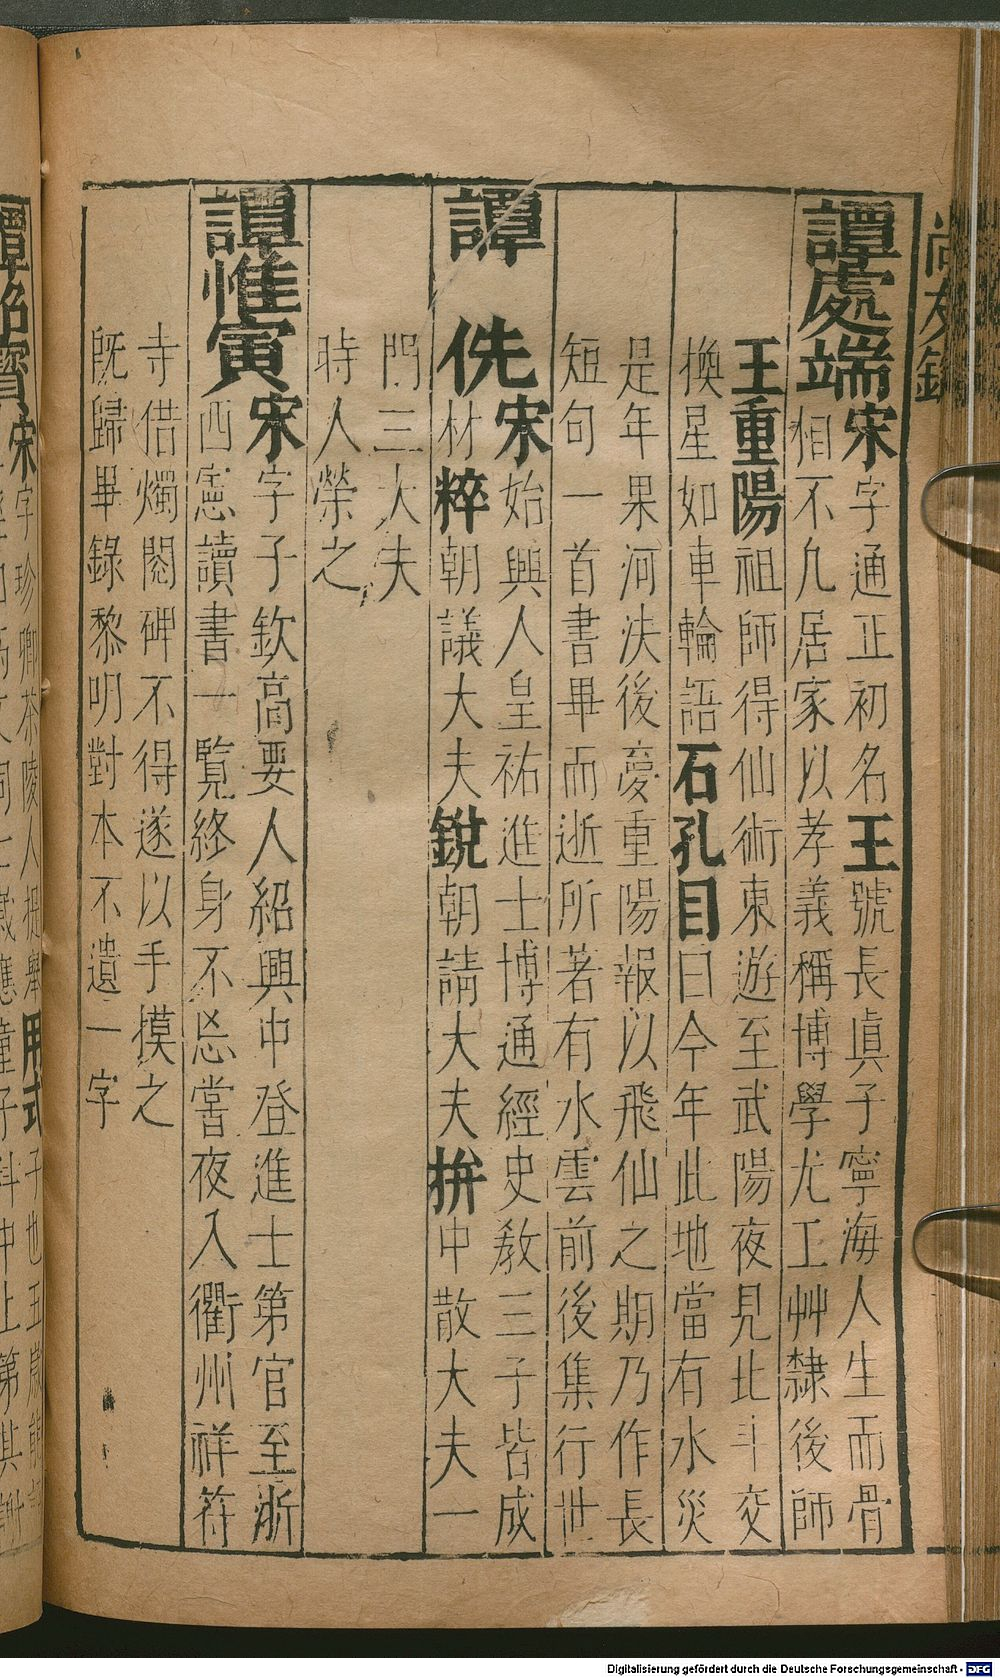 尚友錄
譚處端宋字通正初名王號長眞子寧海人生而骨
相不凡居家以孝義稱博學尤工艸隸後師
王重陽祖師得仙術東遊至武陽夜見北斗交
換星如車輪語石孔目曰今年此地當有水災
是年果河決後夢重陽報以飛仙之期乃作長
短句一首書畢而逝所著有水雲前後集行世
譚侁宋始興人皇祐進士博通經史敎三子皆成
材粹朝議大夫銳朝請大夫拚中散大夫一
門三大夫
時人榮之
譚惟寅宋字子欽高要人紹興中登進士第官至浙
西憲讀書一覽終身不忘嘗夜入衢州祥符
寺借燭閱碑不得遂以手摸之
旣歸畢錄黎明對本不遺一字
宋字珍卿茶陵人提舉用式子也五歲能
Digitalisierung gefördert durch die Deutsche Forschungsgemeinschaft - DFG